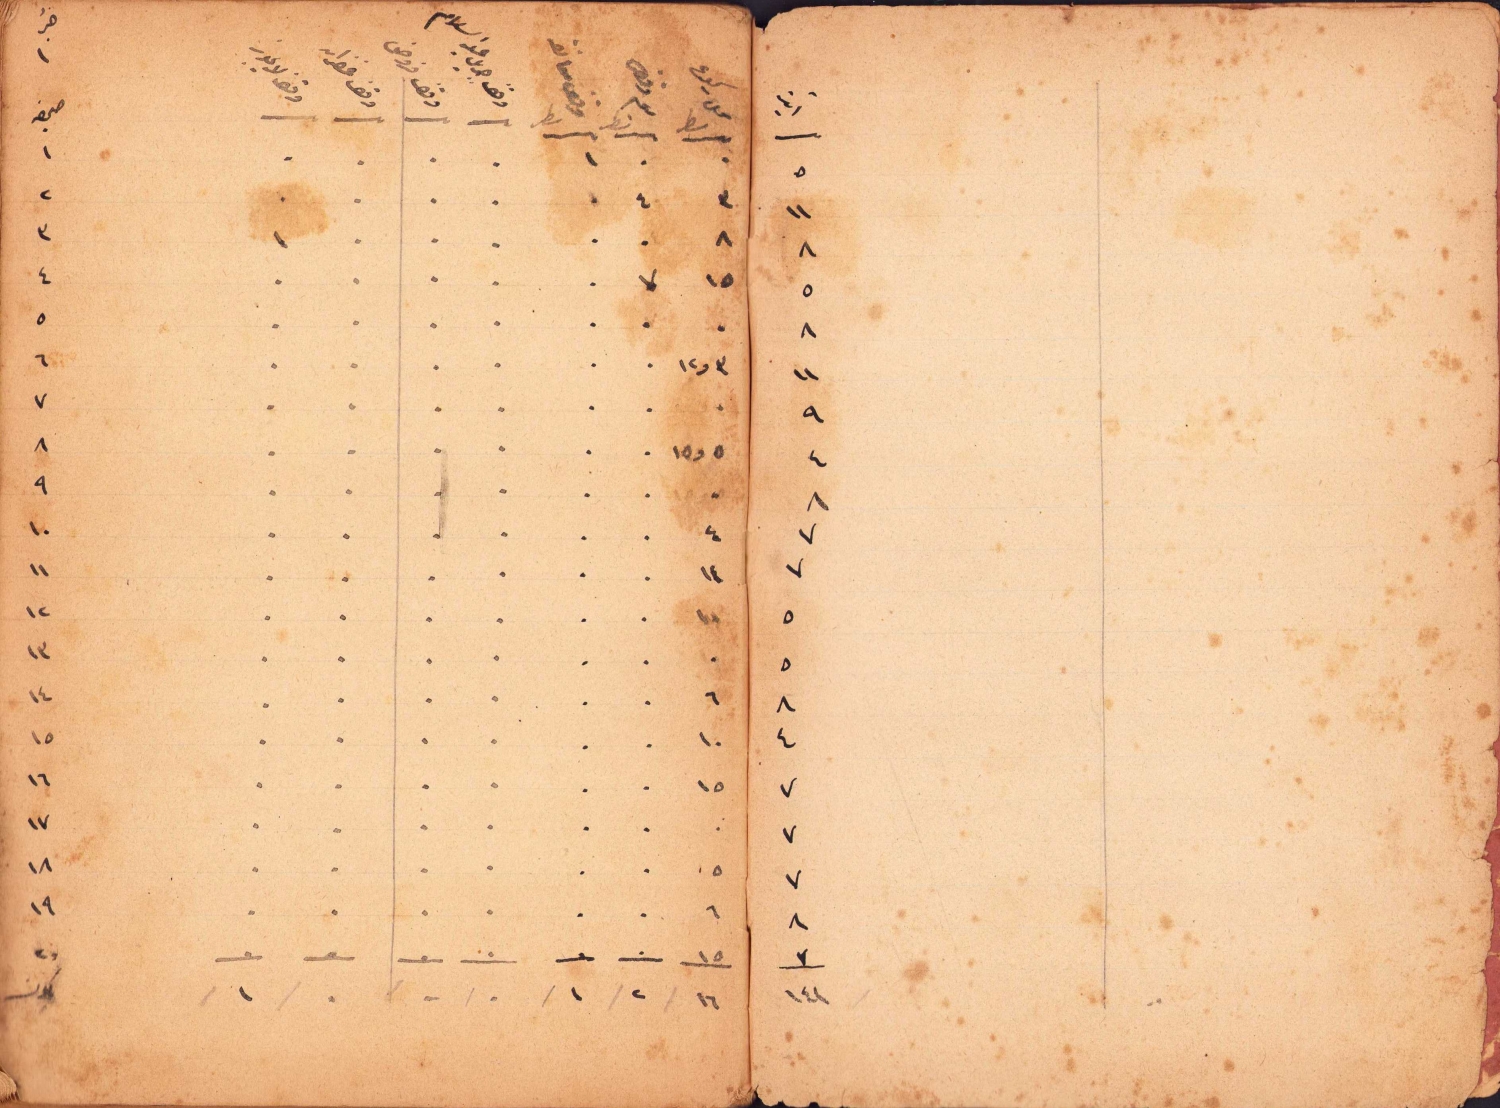 جزء ١
وقف جبريل عليه السلام وقف غفران
سطر سطر سطر صحيفه
٥ ٠ ٠ ١ ٠ ٠ ٠ ٠ ١
١١ ٣ ٤ ٠ ٠ ٠ ٠ ٠ ٢
٨ ٨ ٠ ٠ ٠ ٠ ٠ ١ ٣
٥ ١٥ ٧ ٠ ٠ ٠ ٠ ٠ ٤
٨ ٠ ٠ ٠ ٠ ٠ ٠ ٠ ٥
١١ ٣ و١٢ ٠ ٠ ٠ ٠ ٠ ٠ ٦
٩ ٠ ٠ ٠ ٠ ٠ ٠ ٠ ٧
٤ ٥ و١٥ ٠ ٠ ٠ ٠ ٠ ٠ ٨
٨ ٠ ٠ ٠ ٠ ٠ ٠ ٠ ٩
٧ ٤ ٠ ٠ ٠ ٠ ٠ ٠ ١٠
٧ ١٤ ٠ ٠ ٠ ٠ ٠ ٠ ١١
٥ ١٠ ٠ ٠ ٠ ٠ ٠ ٠ ١٢
٥ ٠ ٠ ٠ ٠ ٠ ٠ ٠ ١٣
٨ ٦ ٠ ٠ ٠ ٠ ٠ ٠ ١٤
٤ ١٠ ٠ ٠ ٠ ٠ ٠ ٠ ١٥
٧ ١٥ ٠ ٠ ٠ ٠ ٠ ٠ ١٦
٧ ٠ ٠ ٠ ٠ ٠ ٠ ٠ ١٧
٧ ٥ ٠ ٠ ٠ ٠ ٠ ٠ ١٨
٨ ٦ ٠ ٠ ٠ ٠ ٠ ٠ ١٩
٣ ١٥ ٠ ٠ ٠ ٠ ٠ ٠ ٢٠
١٤٨ ١٦ ٢ ١ ٠ ٠ ٠ ١